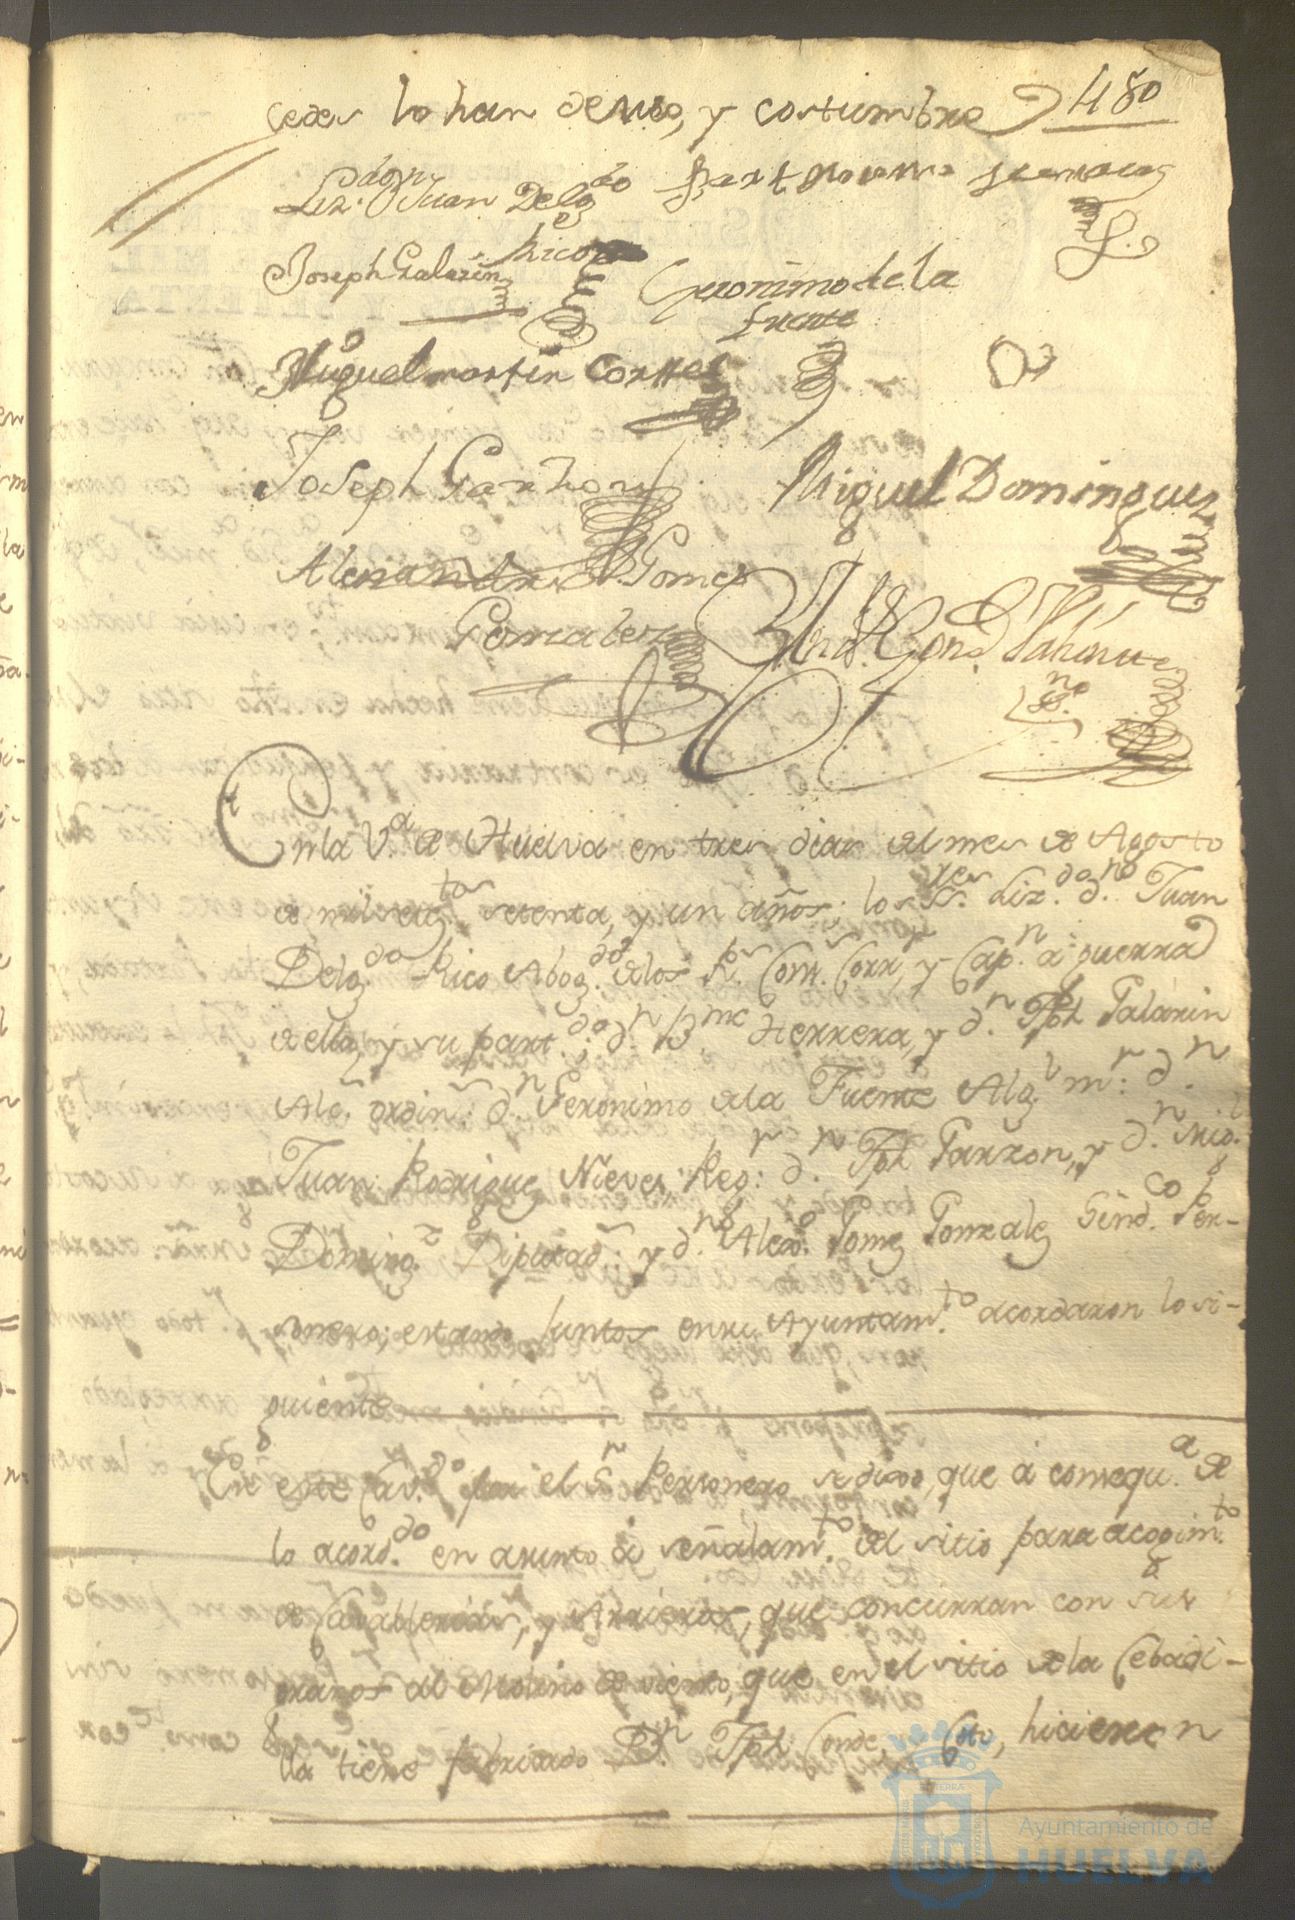 cedes lo han de uso, y costumbre 480
Liz.do don Juan Delg.do
Rico
Joseph Galazin
Geronimo de la
fuente
Miguel martin Corttes
Joseph Garzon
Miguel Dominguez
Alexandro Gomez
Gonzalez
En la V.a de Huelva en tres dias del mes de Agosto
de mil setez.tos setenta, y un años; los S.res Liz.do d.n Juan
Delg.do Rico Abog.do de los R.s Cons.s Corr.r y Cap.n a guerra
de ella, y su part.do; d.n B.me Herrera, y d.n Jph Galazin
Alc.s ordin.s d.n Geronimo de la Fuente Alg.l m.r d.n
Juan Rodriguez Nieves Reg.r d.n Jph Garzon, y d.n Mig.l
Doming.z Diputad.s y d.n Alex.o Gomez Gonzalez Sind.co Per-
sonero; estando Juntos en su Ayuntam.to acordaron lo si-
guiente
En este Cav.do por el S.r Personero se dixo, que á consequ.a de
lo acord.do en asunto á señalam.to del sitio para acogim.to
de Cavallerias, y Arrieros, que concurran con sus
granos al Molino de viento, que en el sitio de la Cebadi-
lla tiene fabricado D.n Jph Conde, y Soto, hicieron
Ayuntamiento de
HUELVA